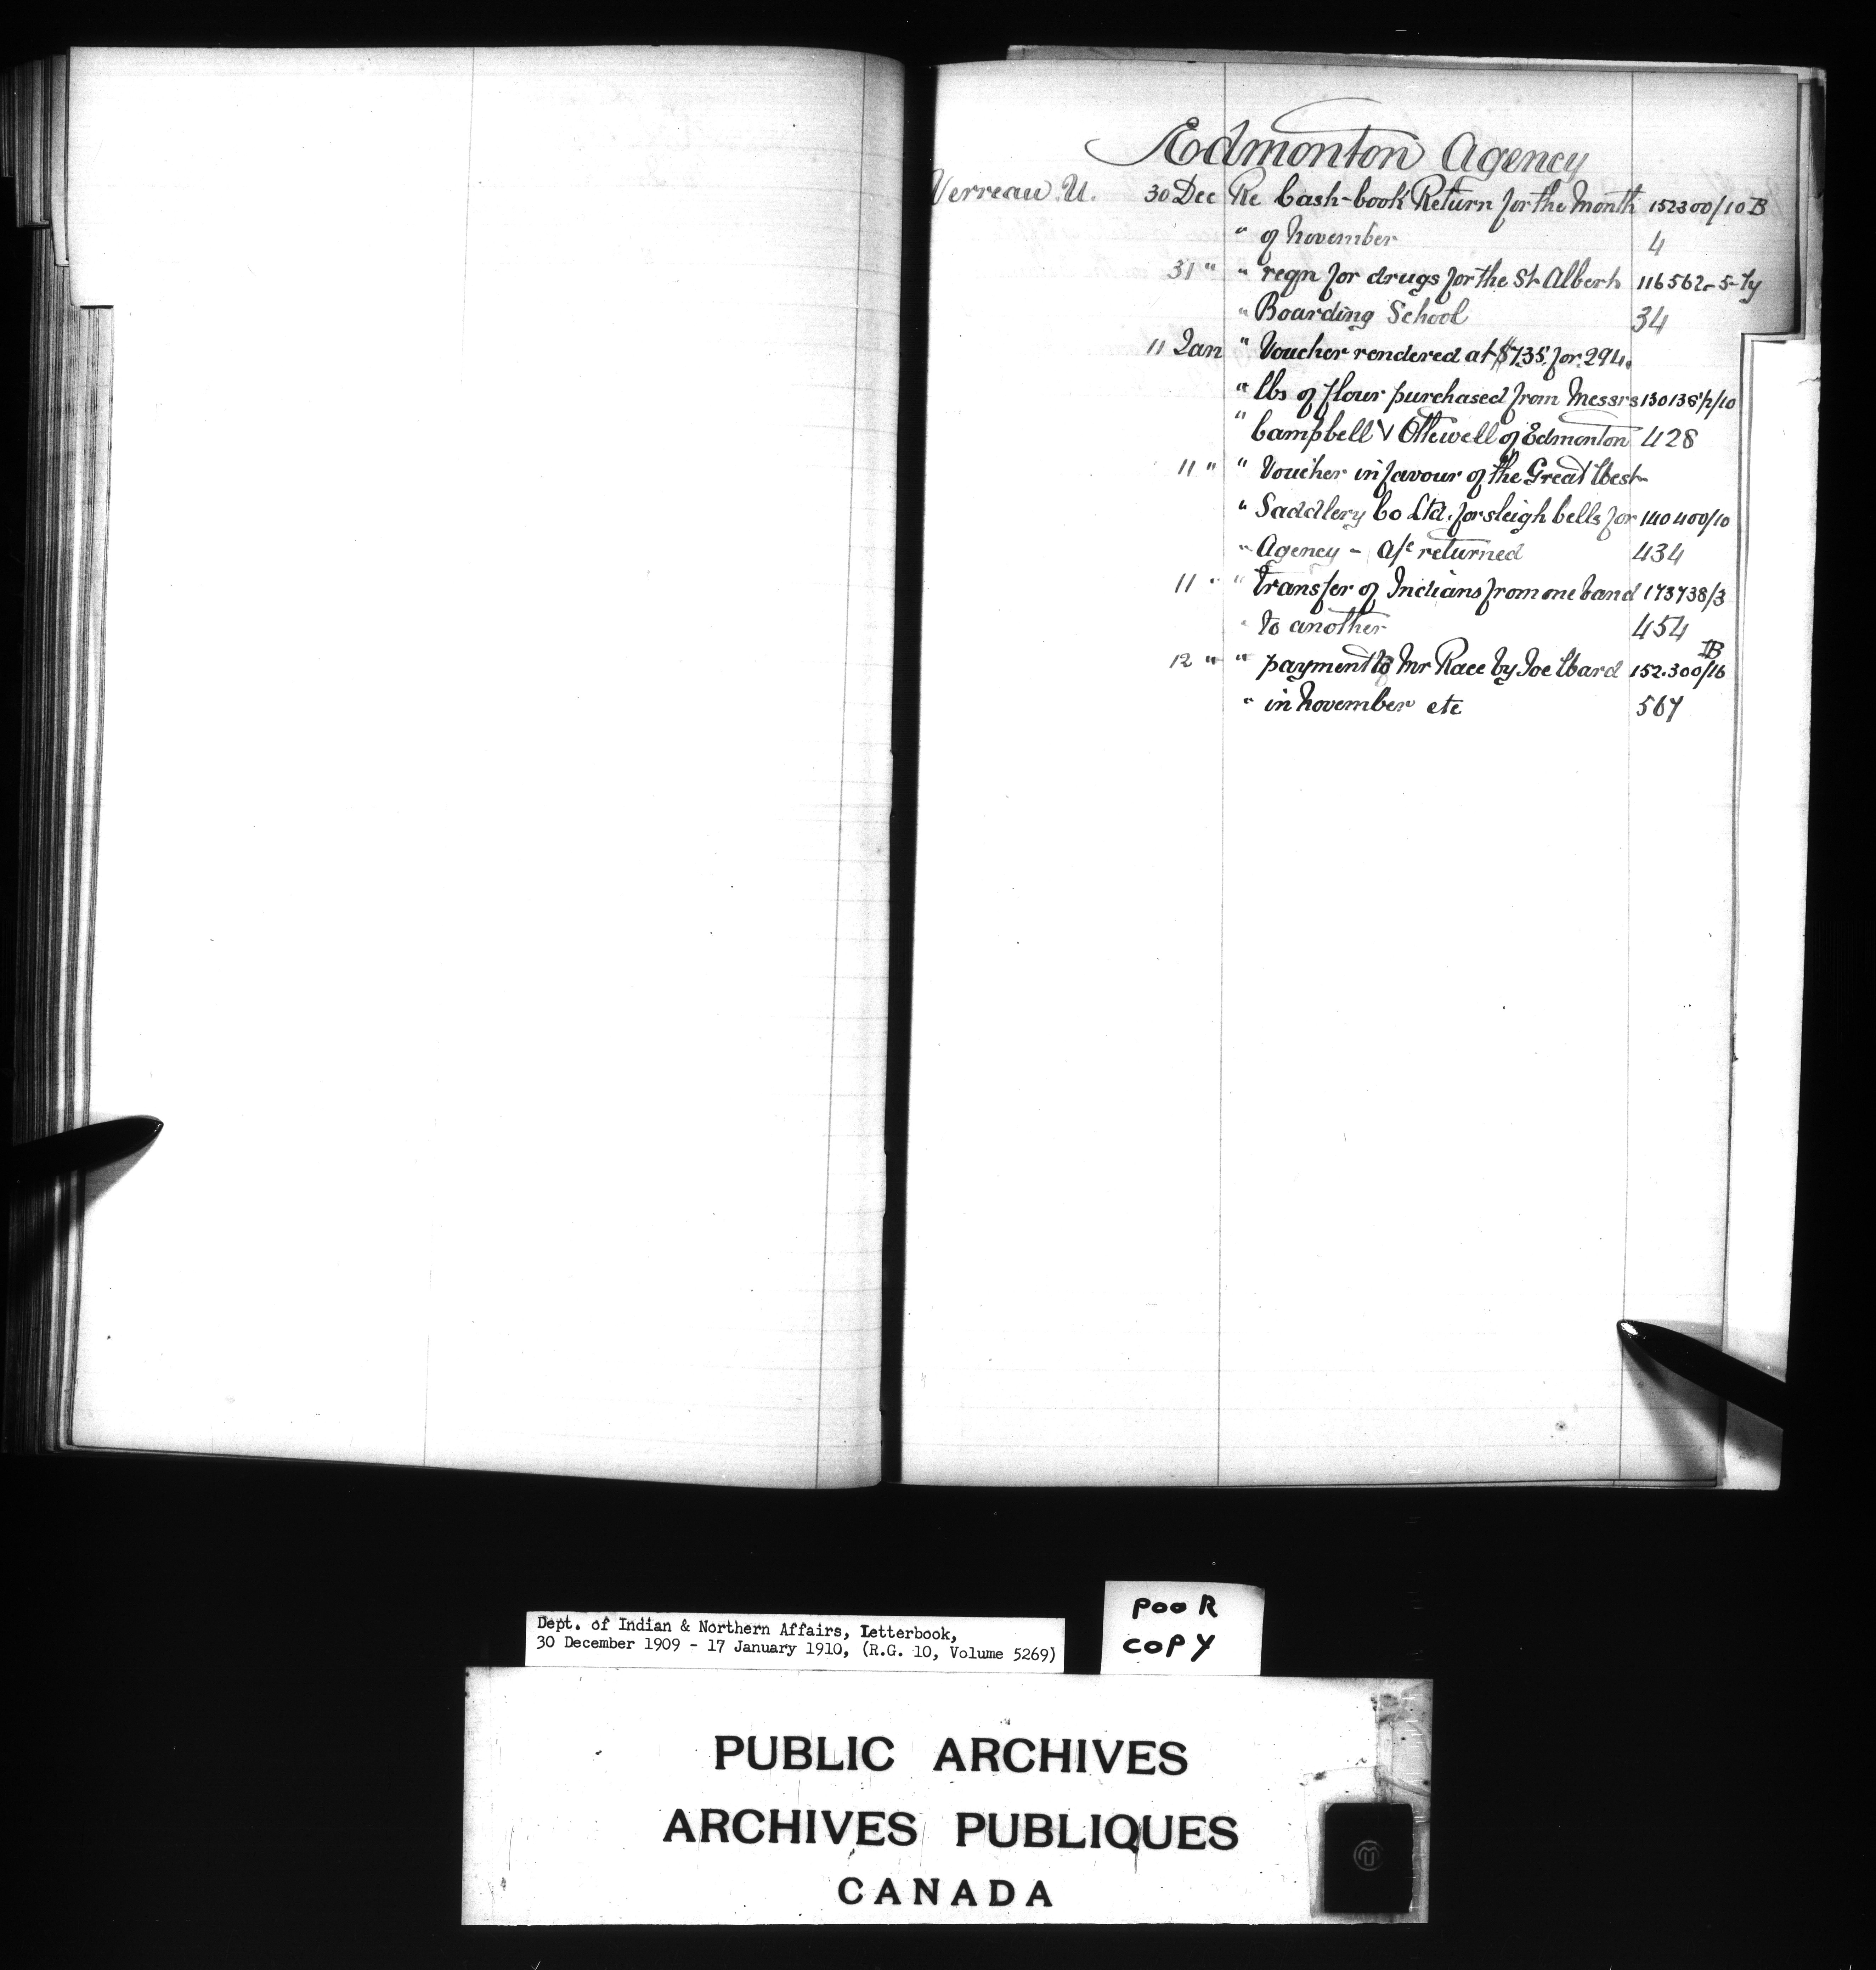 Edmonton Agency
Verreau. U. 30 Dec Re Cash-book Return for the Month 152300/10 B
" of November 4
31 " " reqn for drugs for the St. Albert 116562-5-Ty
" Boarding School 34
11 Jan " Voucher rendered at $7.35 for 294.
" lbs of flour purchased from Messrs
" Campbell & Ottewell of Edmonton 428
11 " " Voucher in favour of the Great West
" Saddlery Co Ltd. for sleigh bells for 140400/10
" Agency - a/c returned 434
11 " " transfer of Indians from one band 173738/3
" to another 454
12 " " payment to Mr Race by Joe Ward 152.300/16
" in November etc 567
POOR
COPY
Dept. of Indian & Northern Affairs, Letterbook,
30 December 1909 - 17 January 1910, (R.G. 10, Volume 5269)
PUBLIC ARCHIVES
ARCHIVES PUBLIQUES
CANADA